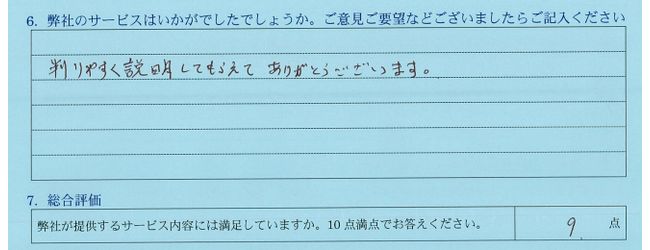 6. 弊社のサービスはいかがでしたでしょうか。ご意見ご要望などございましたらご記入ください
判りやすく説明してもらえて ありがとうございます。
7. 総合評価
弊社が提供するサービス内容には満足していますか。10点満点でお答えください。 9 点